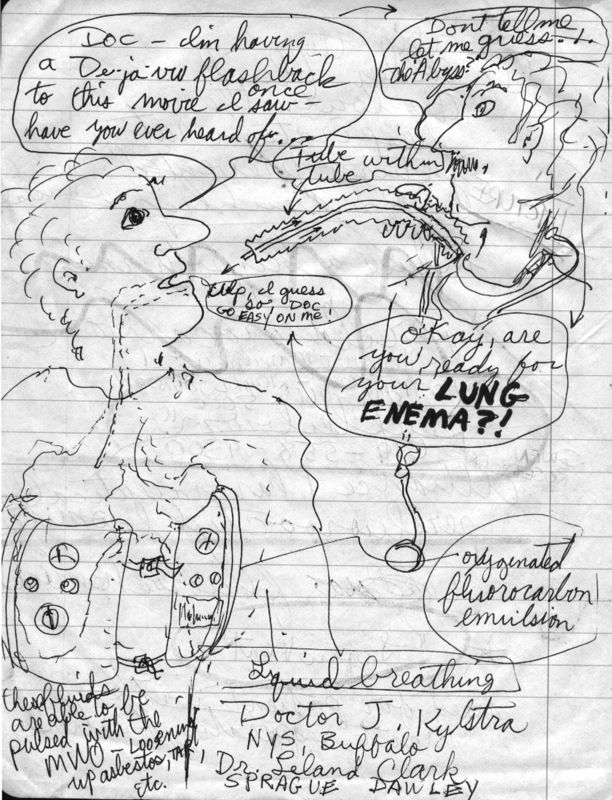 DOC - I'm having
a De-ja-vu flashback
to this movie I once
saw -
have you ever heard of...
Don't tell me
let me guess...
the Abyss?
Tube within
tube
Yup, I guess
so DOC
GO EASY ON ME!
okay, are
you ready for
your LUNG
ENEMA?!
oxygenated
fluorocarbon
emulsion
Liquid breathing
Doctor J. Kylstra
NYS, Buffalo
Dr. Leland Clark
SPRAGUE DAWLEY
these fluids
are able to be
pulsed with the
MWO - LOOSENING
up asbestos, TAR,
etc.